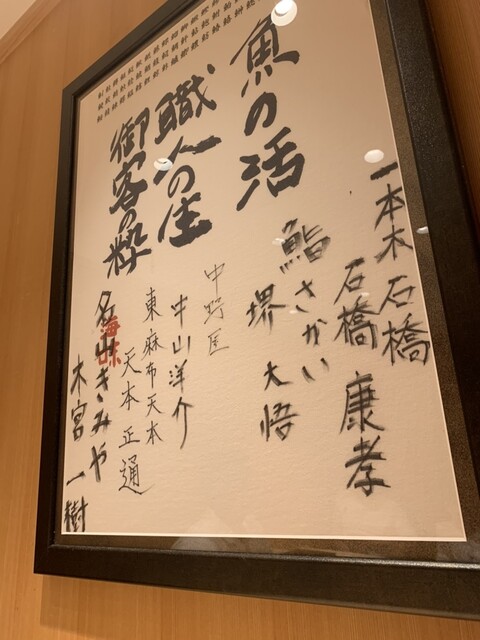 魚の活
職人の生
御客の粋
海味
一本木 石橋
石橋 康孝
鮨さかい
堺 大悟
中野匡
中山洋介
東麻布天本
天本正通
名山きみや
木宮一樹